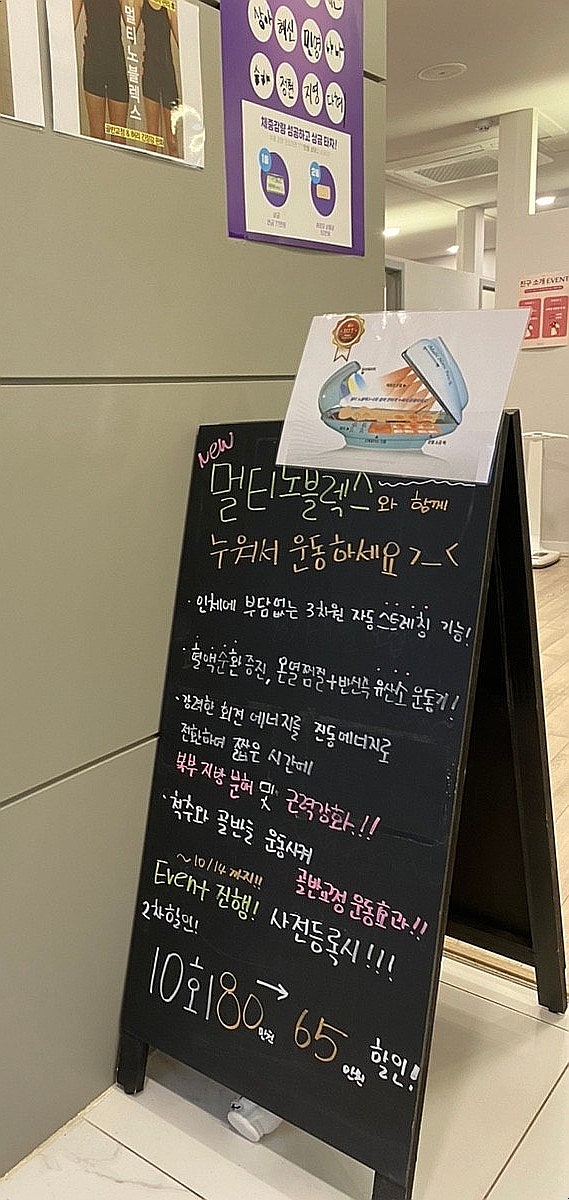 멀티노블렉스
상아 혜신 민영 나나
슬아 정현 지영 다혜
체중감량 성공하고 상금 타자!
1등
2등
친구 소개 EVENT
New
멀티노블렉스와 함께
누워서 운동하세요 >_<
· 인체에 부담없는 3차원 자동스트레칭 기능!
· 혈액순환증진, 온열찜질+반신욕 유산소 운동기!
· 강력한 회전 에너지를 진동에너지로
전환하여 짧은 시간에
복부 지방 분해 및 근력강화!!
· 척추와 골반을 운동시켜
골반교정 운동효과!!
~10/14까지!!
Event 진행! 사전등록시!!!
2차할인!
10회 80만원 → 65만원 할인!